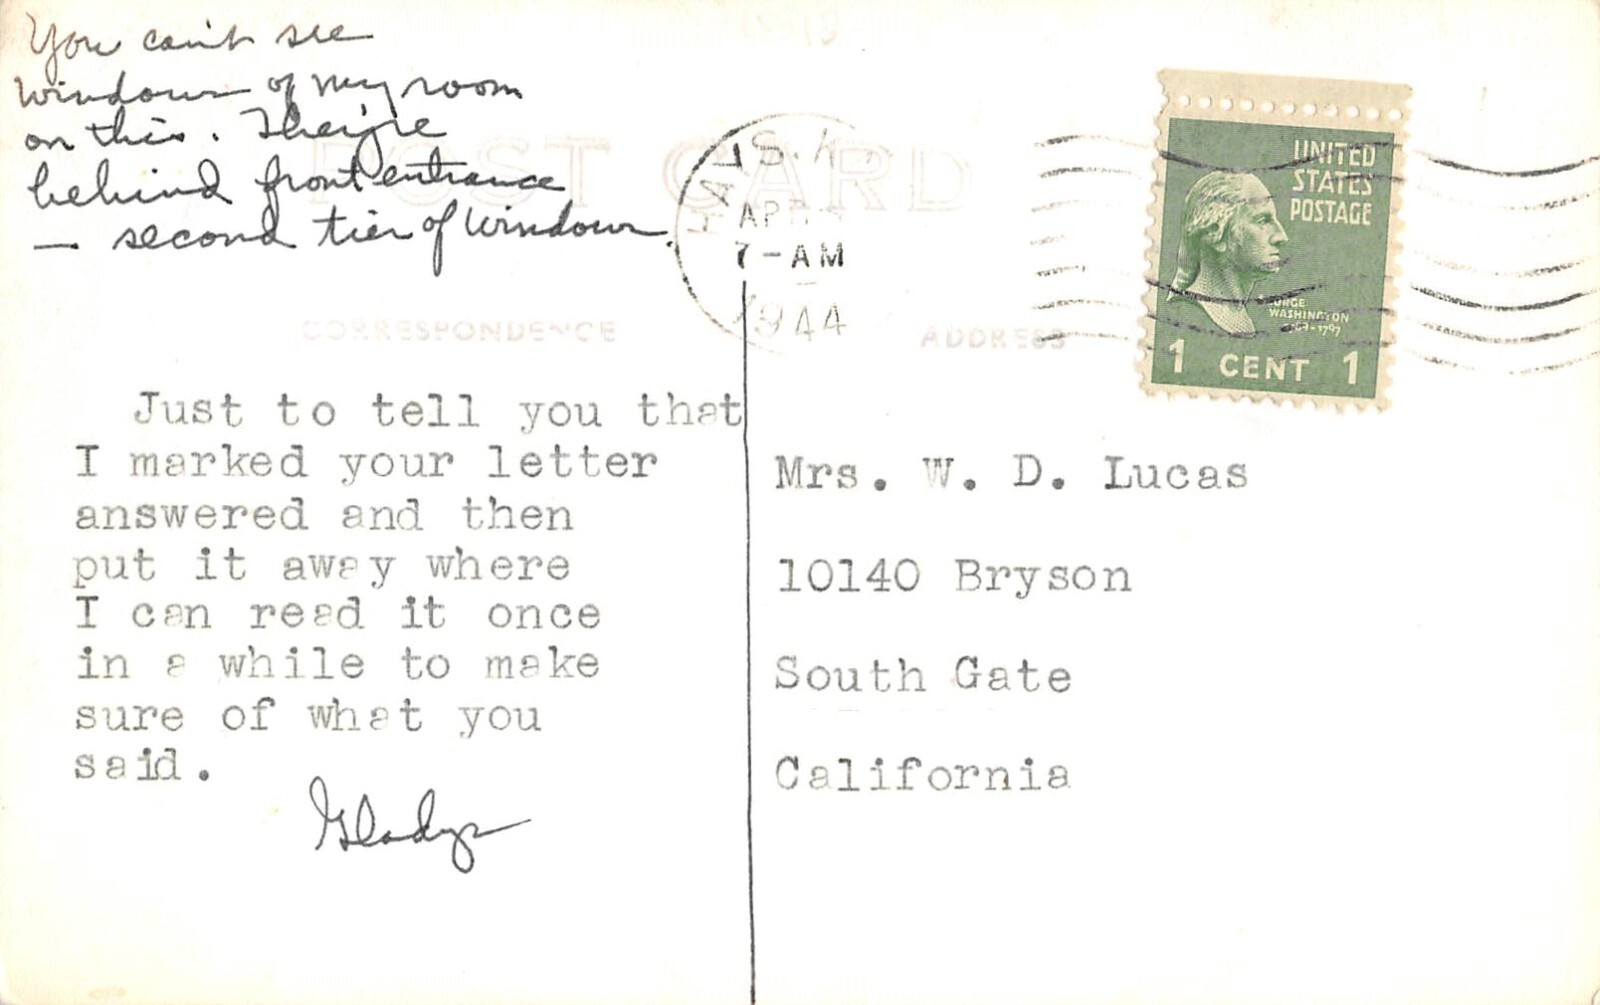 You can't see
windows of my room
on this. They're
behind front entrance
— second tier of windows.
POST CARD
HAYS, K
APR
7-AM
1944
UNITED
STATES
POSTAGE
GEORGE
WASHINGTON
1 CENT 1
CORRESPONDENCE
ADDRESS
Just to tell you that
I marked your letter
answered and then
put it away where
I can read it once
in a while to make
sure of what you
said.
Gladys
Mrs. W. D. Lucas
10140 Bryson
South Gate
California